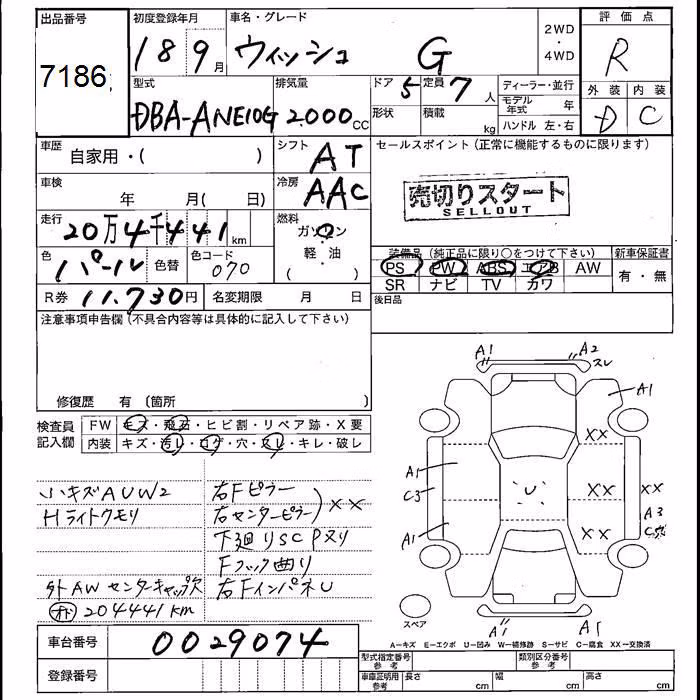 出品番号 初度登録年月 車名・グレード 2WD 評価点
7186 18 9月 ウィッシュ G ・4WD R
型式 排気量 ドア 5 定員 7人 ディーラー・並行 外装 内装
DBA-ANE10G 2.000cc 形状 積載 kg モデル年式 年 D C
ハンドル 左・右
車歴 自家用・( ) シフト AT セールスポイント (正常に機能するものに限ります)
車検 年 月( 日) 冷房 AAC 売切りスタート
SELLOUT
走行 20万4千441km 燃料 ガソリン
軽・油
( )
色 パール 色替 色コード 070 装備品 (純正品に限り○をつけて下さい) 新車保証書
PS PW ABS エアB AW 有・無
SR ナビ TV カワ
R券 11.730円 名変期限 月 日 後日品
注意事項申告欄 (不具合内容等は具体的に記入して下さい)
修復歴 有 (箇所 )
検査員 FW キズ・飛石・ヒビ割・リペア跡・X要
記入欄 内装 キズ・汚レ・コゲ・穴・スレ・キレ・破レ
小キズAUW2 右Fピラー
Hライトクモリ 右センターピラー ××
下廻りSCPヌリ
Fフック曲り
外AWセンターキャップ欠 右FインパネU
オド 204441km
A1 A2 スレ
A1
××
A1
C3 U ×× ××
A3
A1 ××
スペア
A1 A1
A=キズ E=エクボ U=凹み W=補修跡 S=サビ C=腐食 XX=交換済
車台番号 0029074
登録番号
型式指定番号 参考 類別区分番号 参考
車庫証明用 参考 長さ cm 幅 cm 高さ cm